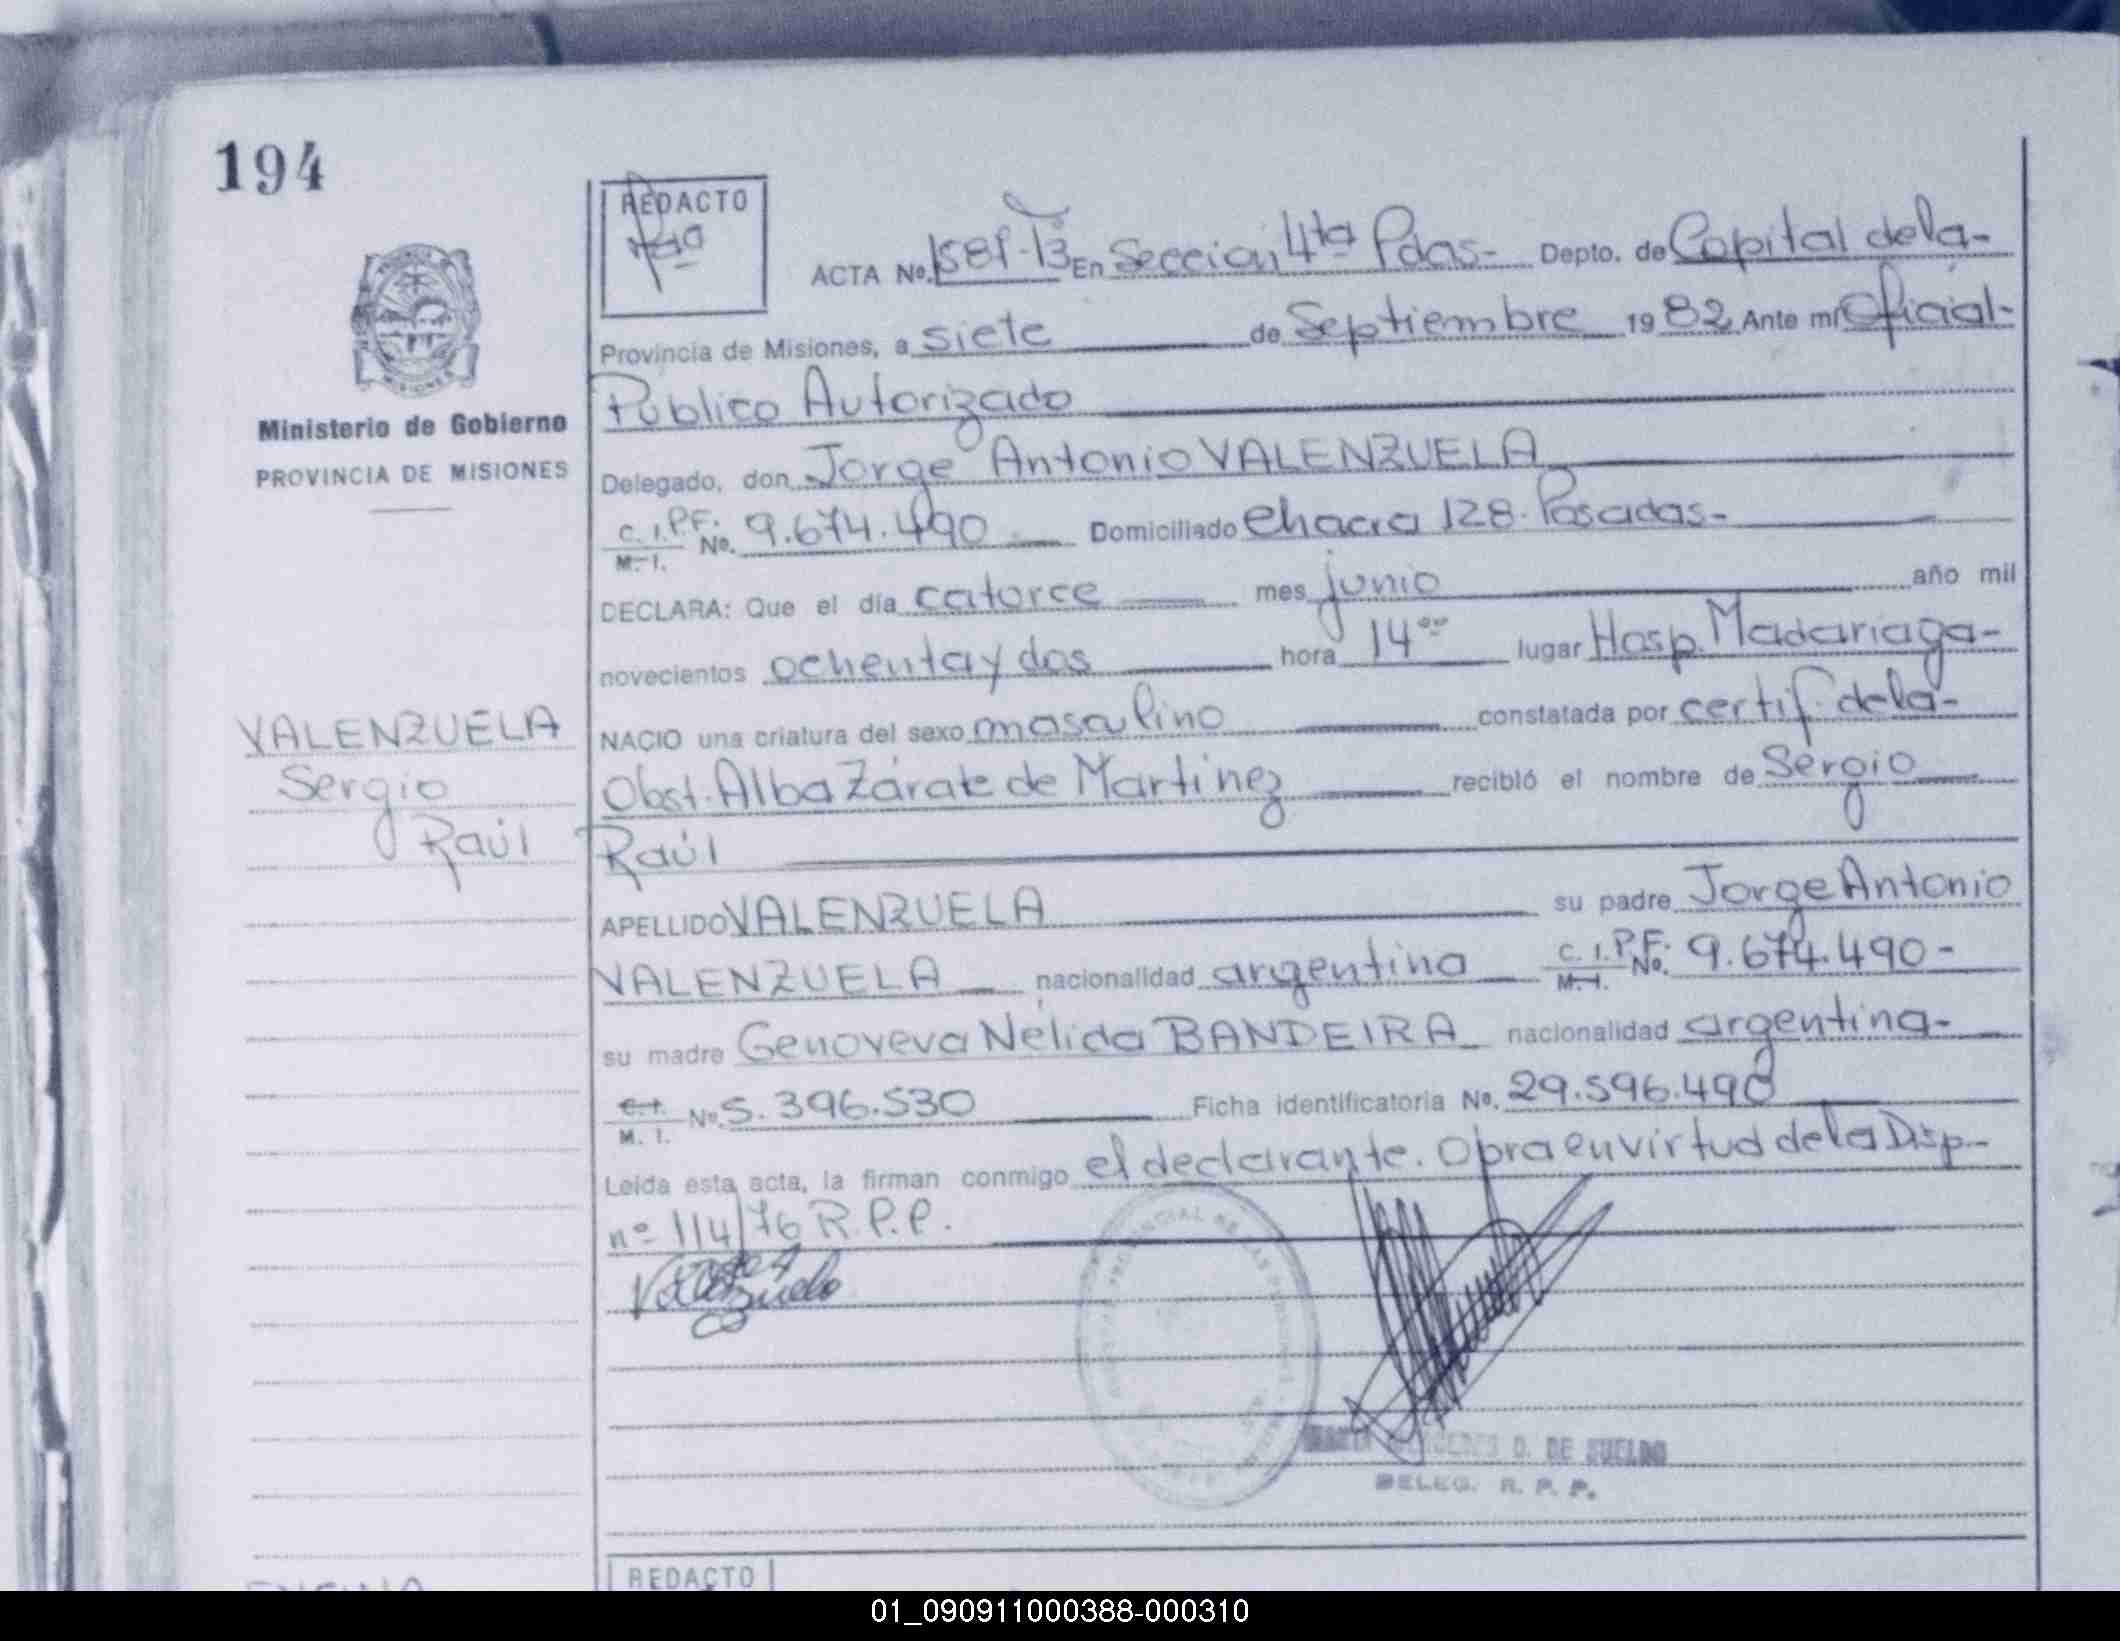 194
REDACTO
ACTA No. 1581-T3 En Sección 4ta Pdas- Depto. de Capital de la-
Provincia de Misiones, a siete de Septiembre 1982 Ante mí Oficial-
Público Autorizado
Ministerio de Gobierno
PROVINCIA DE MISIONES
Delegado, don Jorge Antonio VALENZUELA
C. I. P.F. M. I. No. 9.674.490 Domiciliado Chacra 128. Posadas-
DECLARA: Que el día catorce mes junio año mil
novecientos ochenta y dos hora 14 lugar Hosp. Madariaga-
NACIO una criatura del sexo masculino constatada por certif. de la-
Obst. Alba Zárate de Martinez recibió el nombre de Sergio
Raúl
VALENZUELA
Sergio
Raúl
APELLIDO VALENZUELA su padre Jorge Antonio
VALENZUELA nacionalidad argentina C. I. P.F. M. I. No. 9.674.490-
su madre Genoveva Nélida BANDEIRA nacionalidad argentina-
C. I. M. I. No. 5.396.530 Ficha identificatoria No. 29.596.490
Leída esta acta, la firman conmigo el declarante. Obra en virtud de la Disp-
nº 114/76 R.P.P.
Valenzuela
D. DE SUELDO
DELEG. R. P. P.
REDACTO
01_090911000388-000310